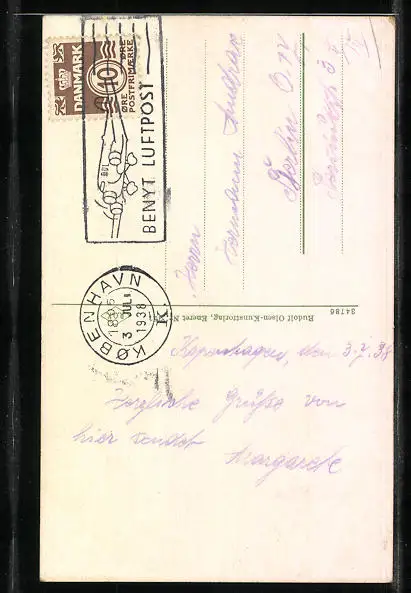 DANMARK
10 ØRE
ØRE
POSTFRIMÆRKE
BENYT LUFTPOST
KØBENHAVN
3 JULI
1938
K.
Herrn
Hermann
Berlin O.17
Rudolf Olsen-Kunstforlag, Eneret
34786
Kopenhagen, den 3.7.38
Herzliche Grüße von
hier sendet
Margarete